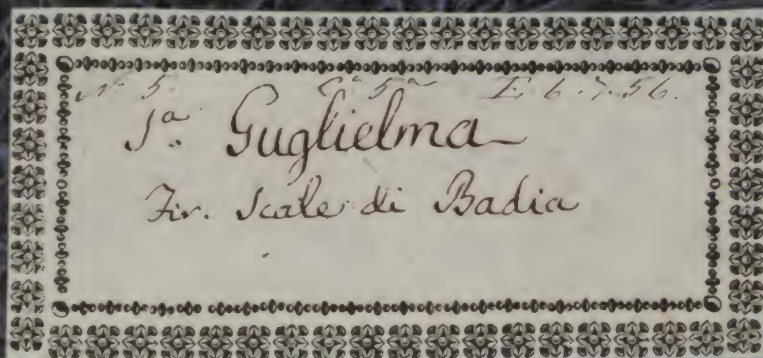 N° 5. C° 5ª E. 6. 7. 56.
Sª. Guglielma
Fir. Scale di Badia